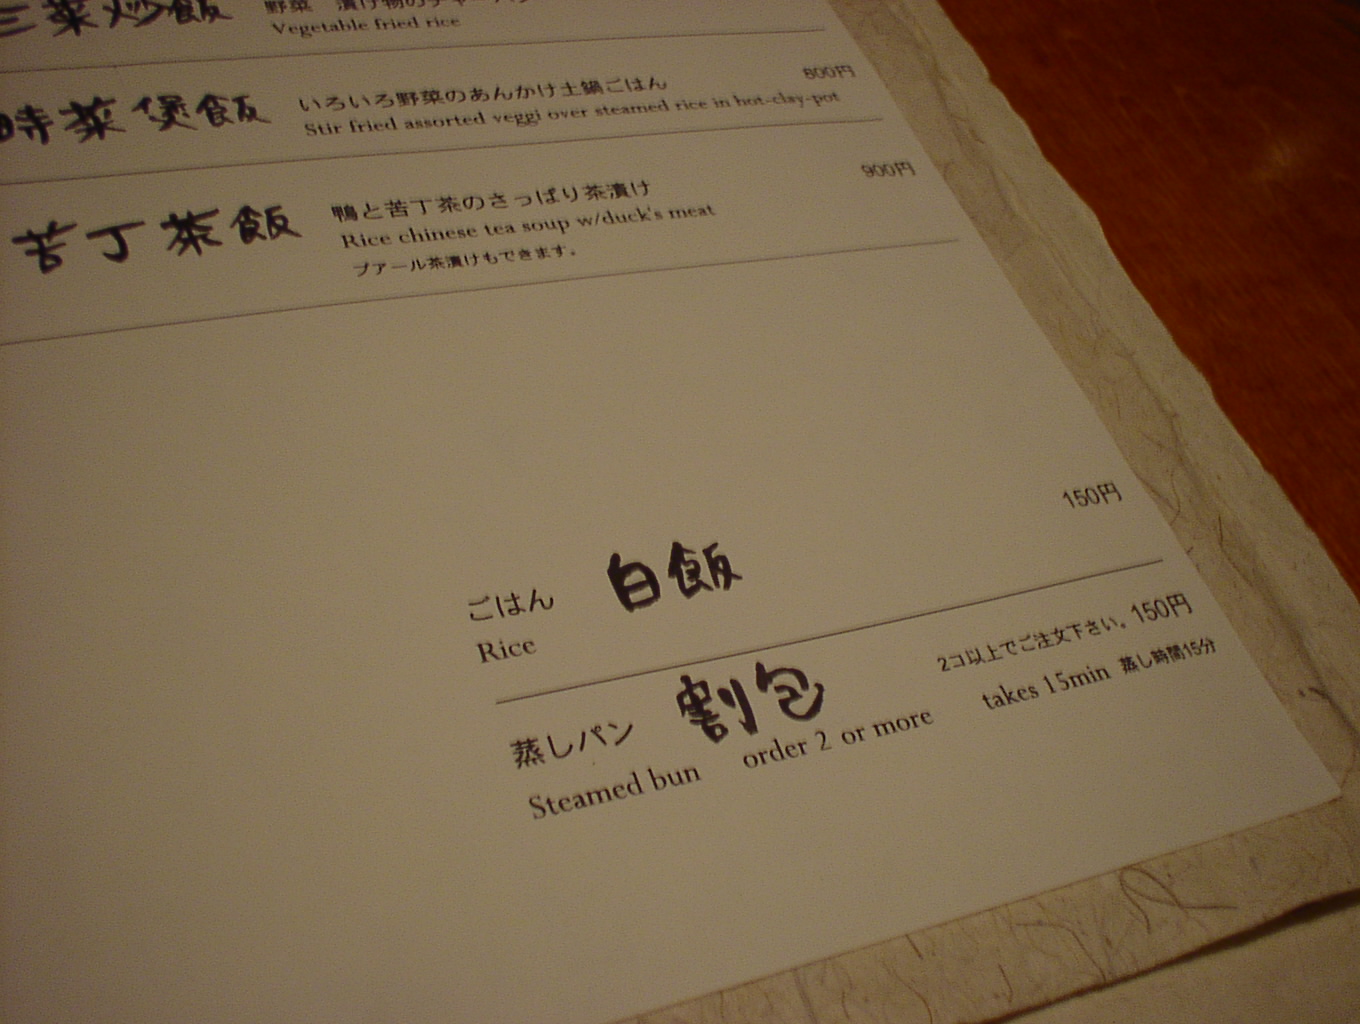 三菜炒飯
野菜 漬け物のチャーハン
Vegetable fried rice
時菜煲飯
いろいろ野菜のあんかけ土鍋ごはん
800円
Stir fried assorted veggi over steamed rice in hot-clay-pot
苦丁茶飯
鴨と苦丁茶のさっぱり茶漬け
900円
Rice chinese tea soup w/duck's meat
プアール茶漬けもできます。
150円
ごはん 白飯
Rice
蒸しパン 割包
2コ以上でご注文下さい。 150円
Steamed bun order 2 or more takes 15min 蒸し時間15分